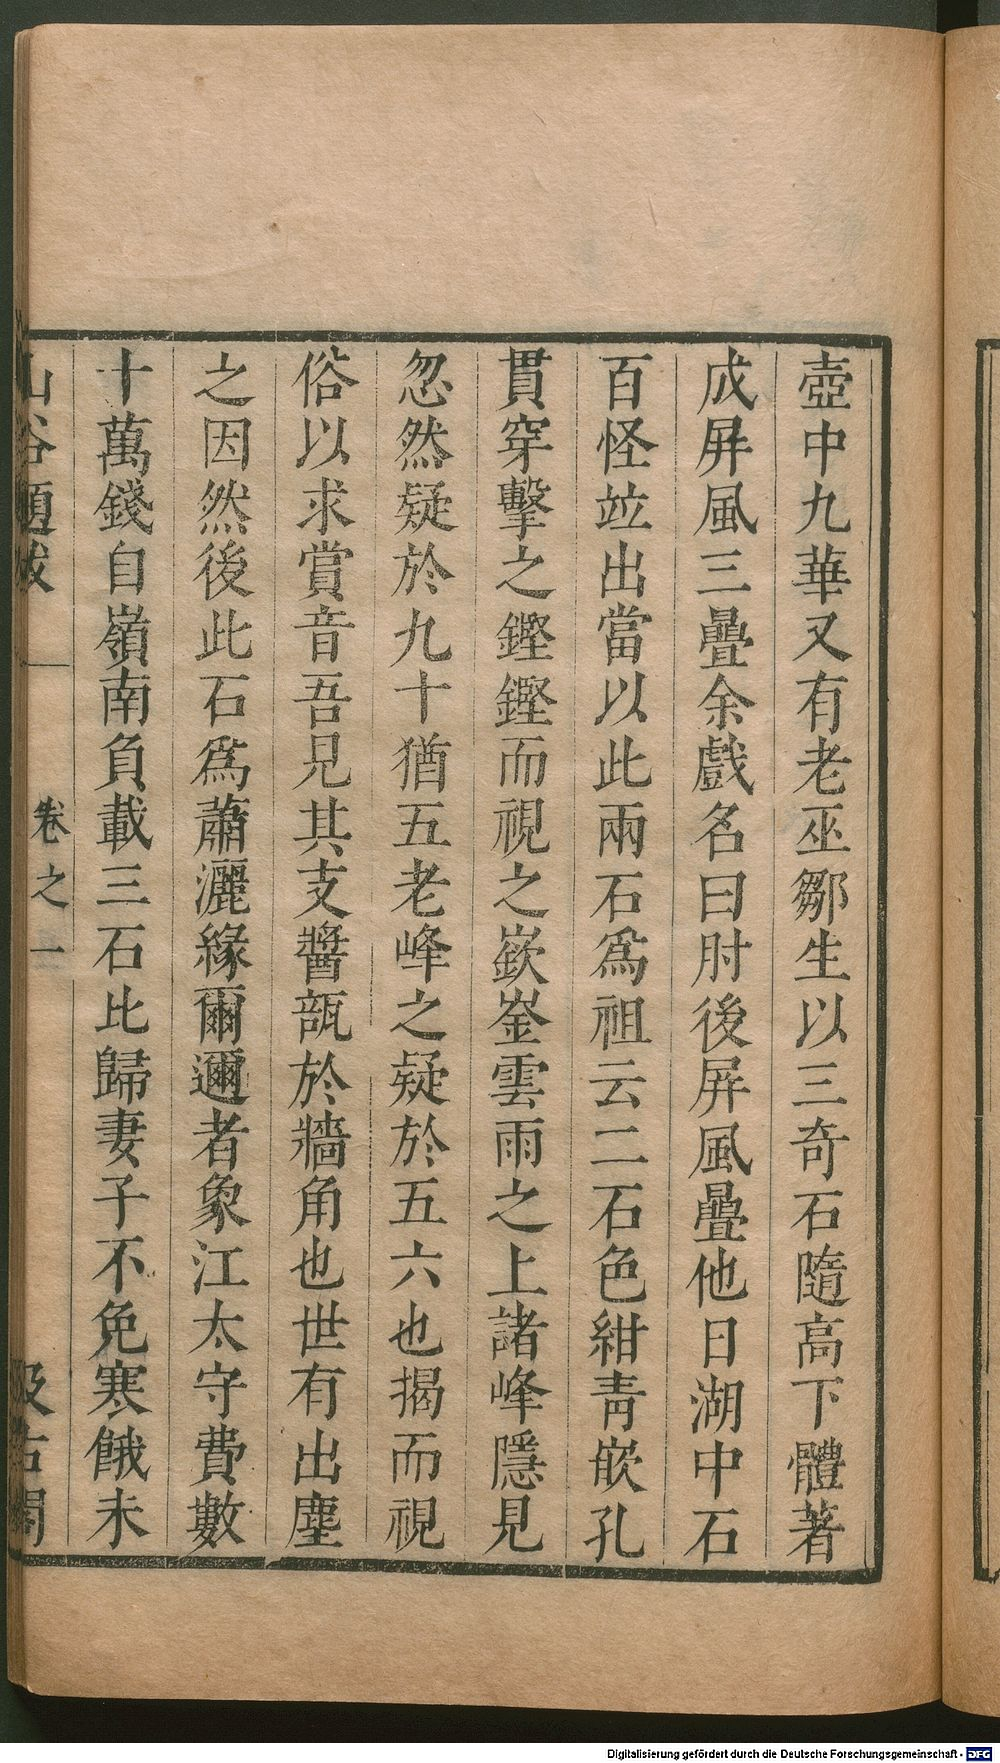 壺中九華又有老巫鄒生以三奇石隨高下體著
成屛風三疊余戲名曰肘後屛風疊他日湖中石
百怪竝出當以此兩石爲祖云二石色紺靑嵌孔
貫穿擊之鏗鏗而視之嶔崟雲雨之上諸峰隱見
忽然疑於九十猶五老峰之疑於五六也揭而視
俗以求賞音吾見其支醬瓿於牆角也世有出塵
之因然後此石爲蕭灑緣爾邇者象江太守費數
十萬錢自嶺南負載三石比歸妻子不免寒餓未
山谷題跋 卷之一 汲古閣
Digitalisierung gefördert durch die Deutsche Forschungsgemeinschaft - DFG